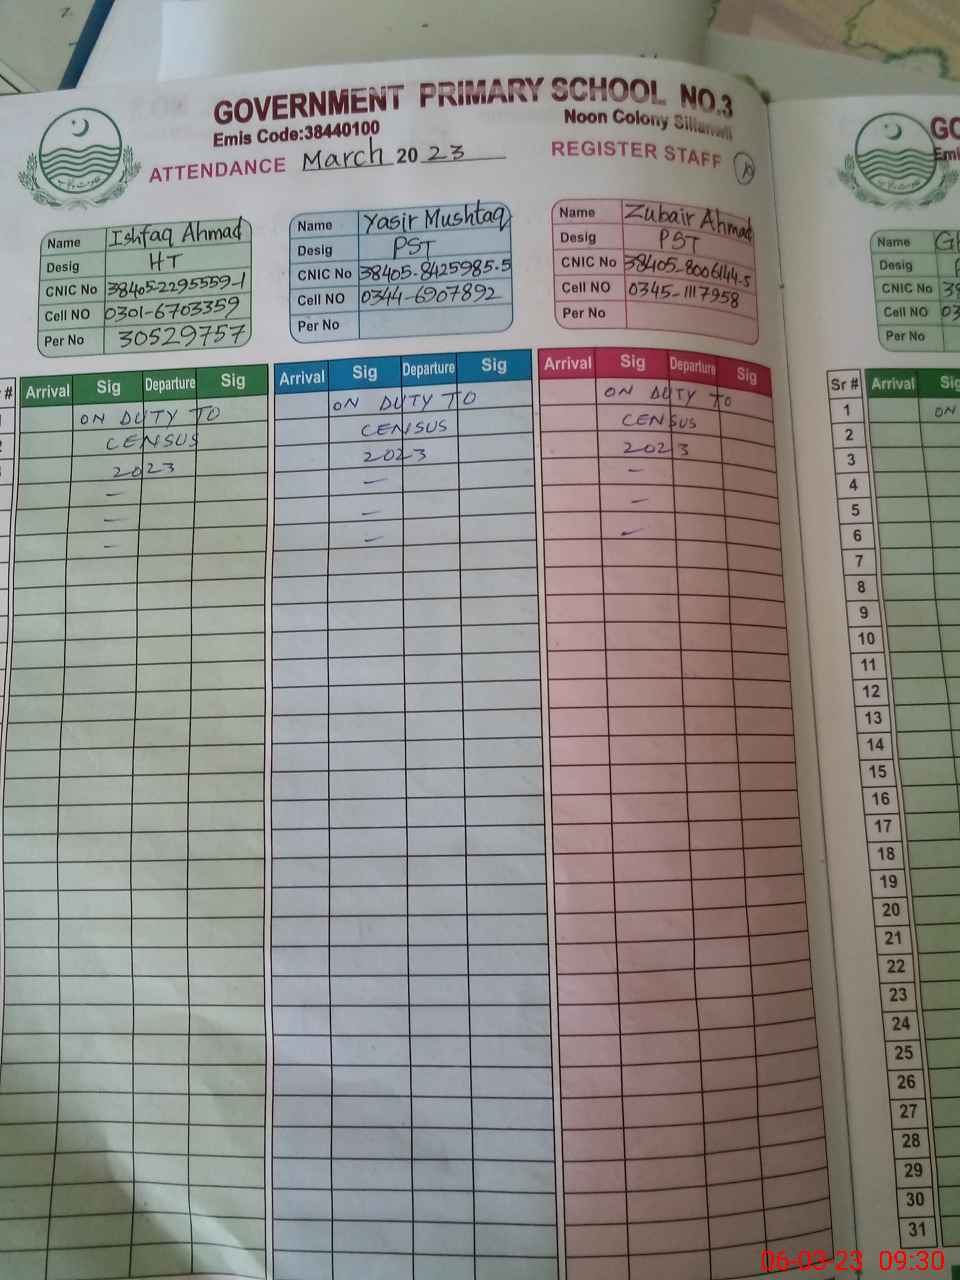 GOVERNMENT PRIMARY SCHOOL NO.3
Emis Code:38440100
Noon Colony Sillanwali
ATTENDANCE March 2023 REGISTER STAFF
Name Ishfaq Ahmad
Desig HT
CNIC No 38405-2295559-1
Cell NO 0301-6703359
Per No 30529757
Name Yasir Mushtaq
Desig PST
CNIC No 38405-8425985-5
Cell NO 0344-6907892
Per No
Name Zubair Ahmad
Desig PST
CNIC No 38405-8006144-5
Cell NO 0345-1117958
Per No
Arrival Sig Departure Sig
ON DUTY TO
CENSUS
2023
Arrival Sig Departure Sig
ON DUTY TO
CENSUS
2023
Arrival Sig Departure Sig
ON DUTY TO
CENSUS
2023
Emi
Name
Desig
CNIC No 38
Cell NO 03
Per No
Sr # Arrival Sig
1 ON
2
3
4
5
6
7
8
9
10
11
12
13
14
15
16
17
18
19
20
21
22
23
24
25
26
27
28
29
30
31
06-03-23 09:30